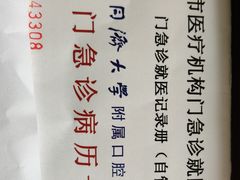 市医疗机构门急诊就
门急诊就医记录册（自
同濟大學附属口腔
门急诊病历
43308